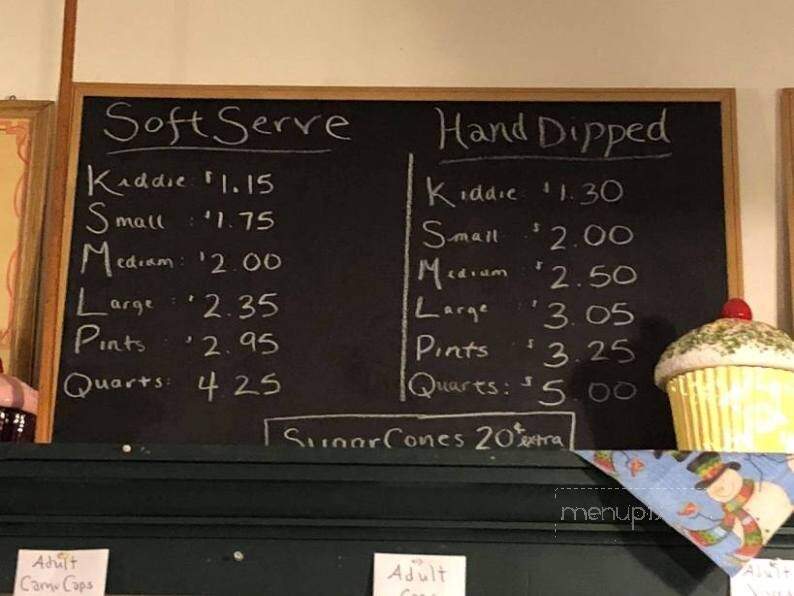 Soft Serve
Kiddie $1.15
Small : $1.75
Medium : $2.00
Large : $2.35
Pints : $2.95
Quarts: 4.25
Hand Dipped
Kiddie $1.30
Small $2.00
Medium $2.50
Large $3.05
Pints $3.25
Quarts: $5.00
Sugar Cones 20¢ extra
Adult
Camo Caps
Adult
Adult